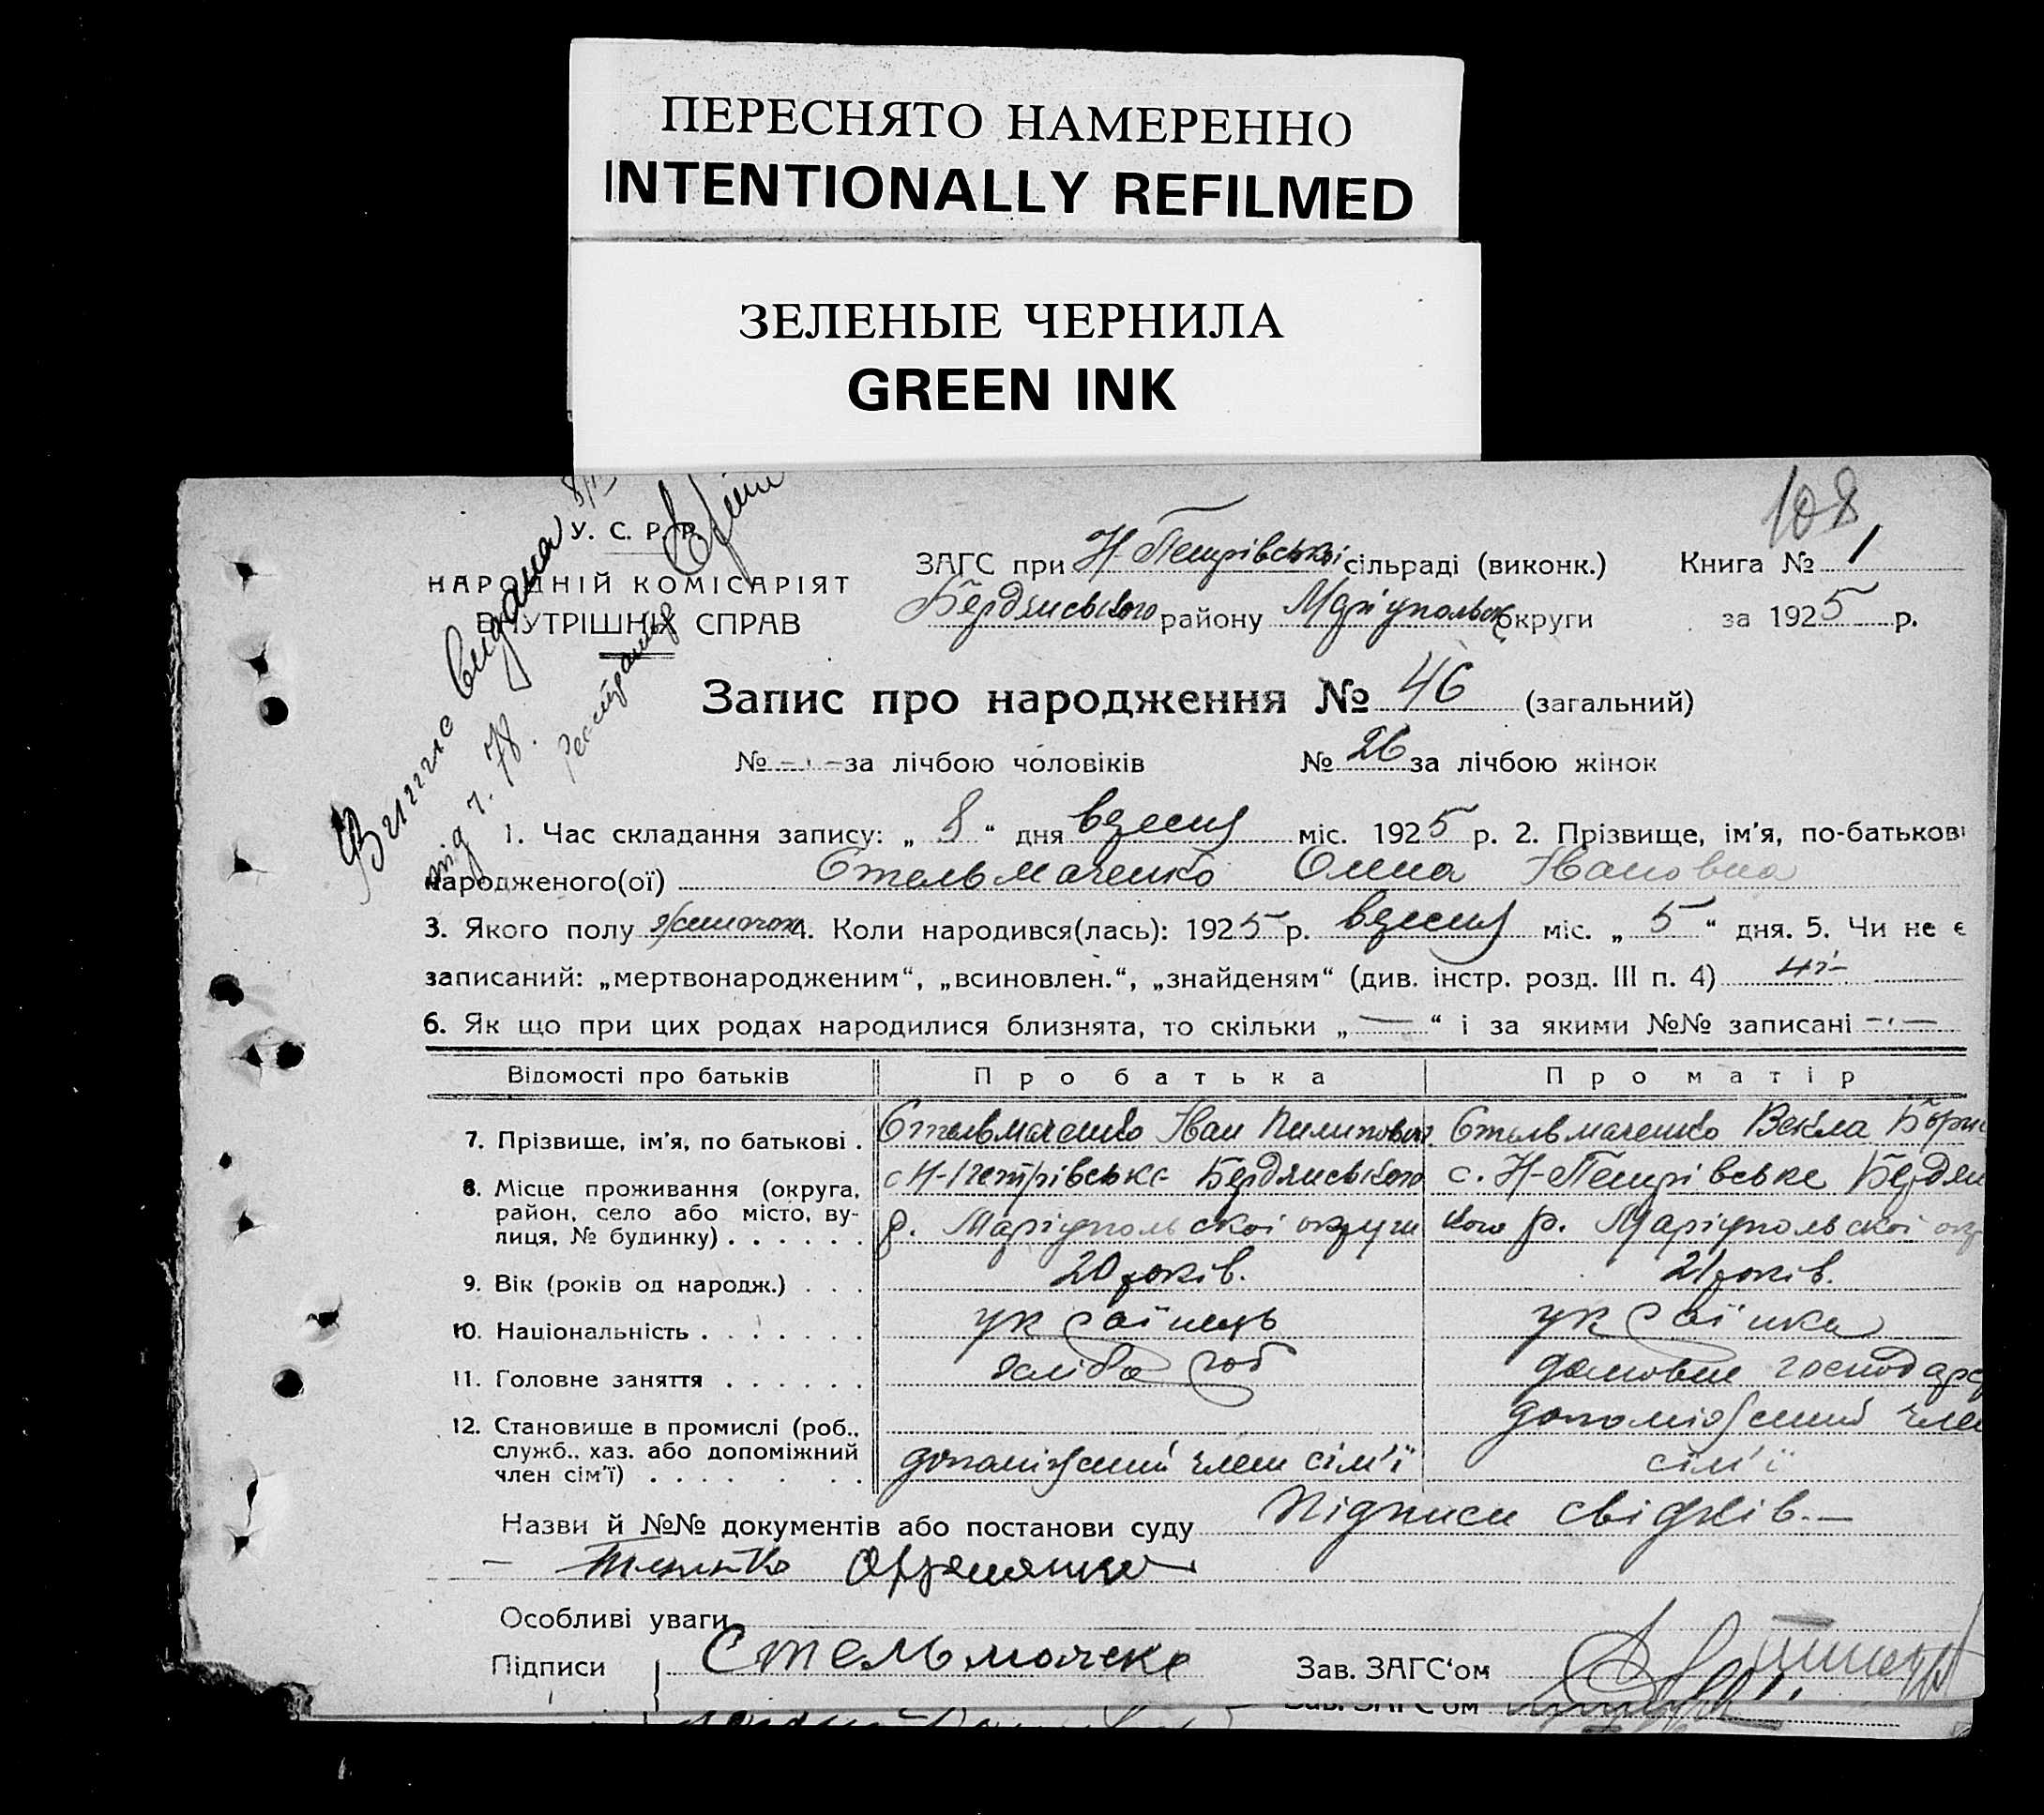 ПЕРЕСНЯТО НАМЕРЕННО
INTENTIONALLY REFILMED
ЗЕЛЕНЫЕ ЧЕРНИЛА
GREEN INK
108
У. С. Р. Р.
НАРОДНІЙ КОМІСАРІЯТ
ВНУТРІШНІХ СПРАВ
Випис видана
під ч. 78.
ЗАГС при Н-Петрівській сільраді (виконк.) Книга № 1
Бердянського району Маріупольськ округи за 1925 р.
Запис про народження № 46 (загальний)
№ - ı - за лічбою чоловіків № 26 за лічбою жінок
1. Час складання запису: „ 8 “ дня вересня міс. 1925 р. 2. Прізвище, ім’я, по-батькові
народженого(ої) Стельмаченко Олена Івановна
3. Якого полу жіночою 4. Коли народився(лась): 1925 р. вересня міс. „ 5 “ дня. 5. Чи не є
записаний: „мертвонародженим“, „всиновлен.“, „знайденям“ (див. інстр. розд. III п. 4) ні-
6. Як що при цих родах народилися близнята, то скільки „ — “ і за якими №№ записані - ı —
Відомості про батьків Про батька Про матір
7. Прізвище, ім’я, по батькові . Стельмаченко Іван Пилипович. Стельмаченко Векла Борис
8. Місце проживання (округа, район, село або місто, вулиця, № будинку) . . . . . .
с Н-Петрівське Бердянського с. Н-Петрівське Бердян
р. Маріупольскої округи кого р. Маріупольскої окр
9. Вік (років од народж.) . . . 20 років. 21 років.
10. Національність . . . . . . . українець українка
11. Головне заняття . . . . . . хлібороб домовне господарс
12. Становище в промислі (роб., служб., хаз. або допоміжний член сім’ї) . . . . . .
допоміжний член сім’ї допоміжний член
сім’ї
Назви й №№ документів або постанови суду Підписи свідків. —
Особливі уваги
Підписи Стельмаченко Зав. ЗАГС‘ом
Зав. ЗАГС‘ом